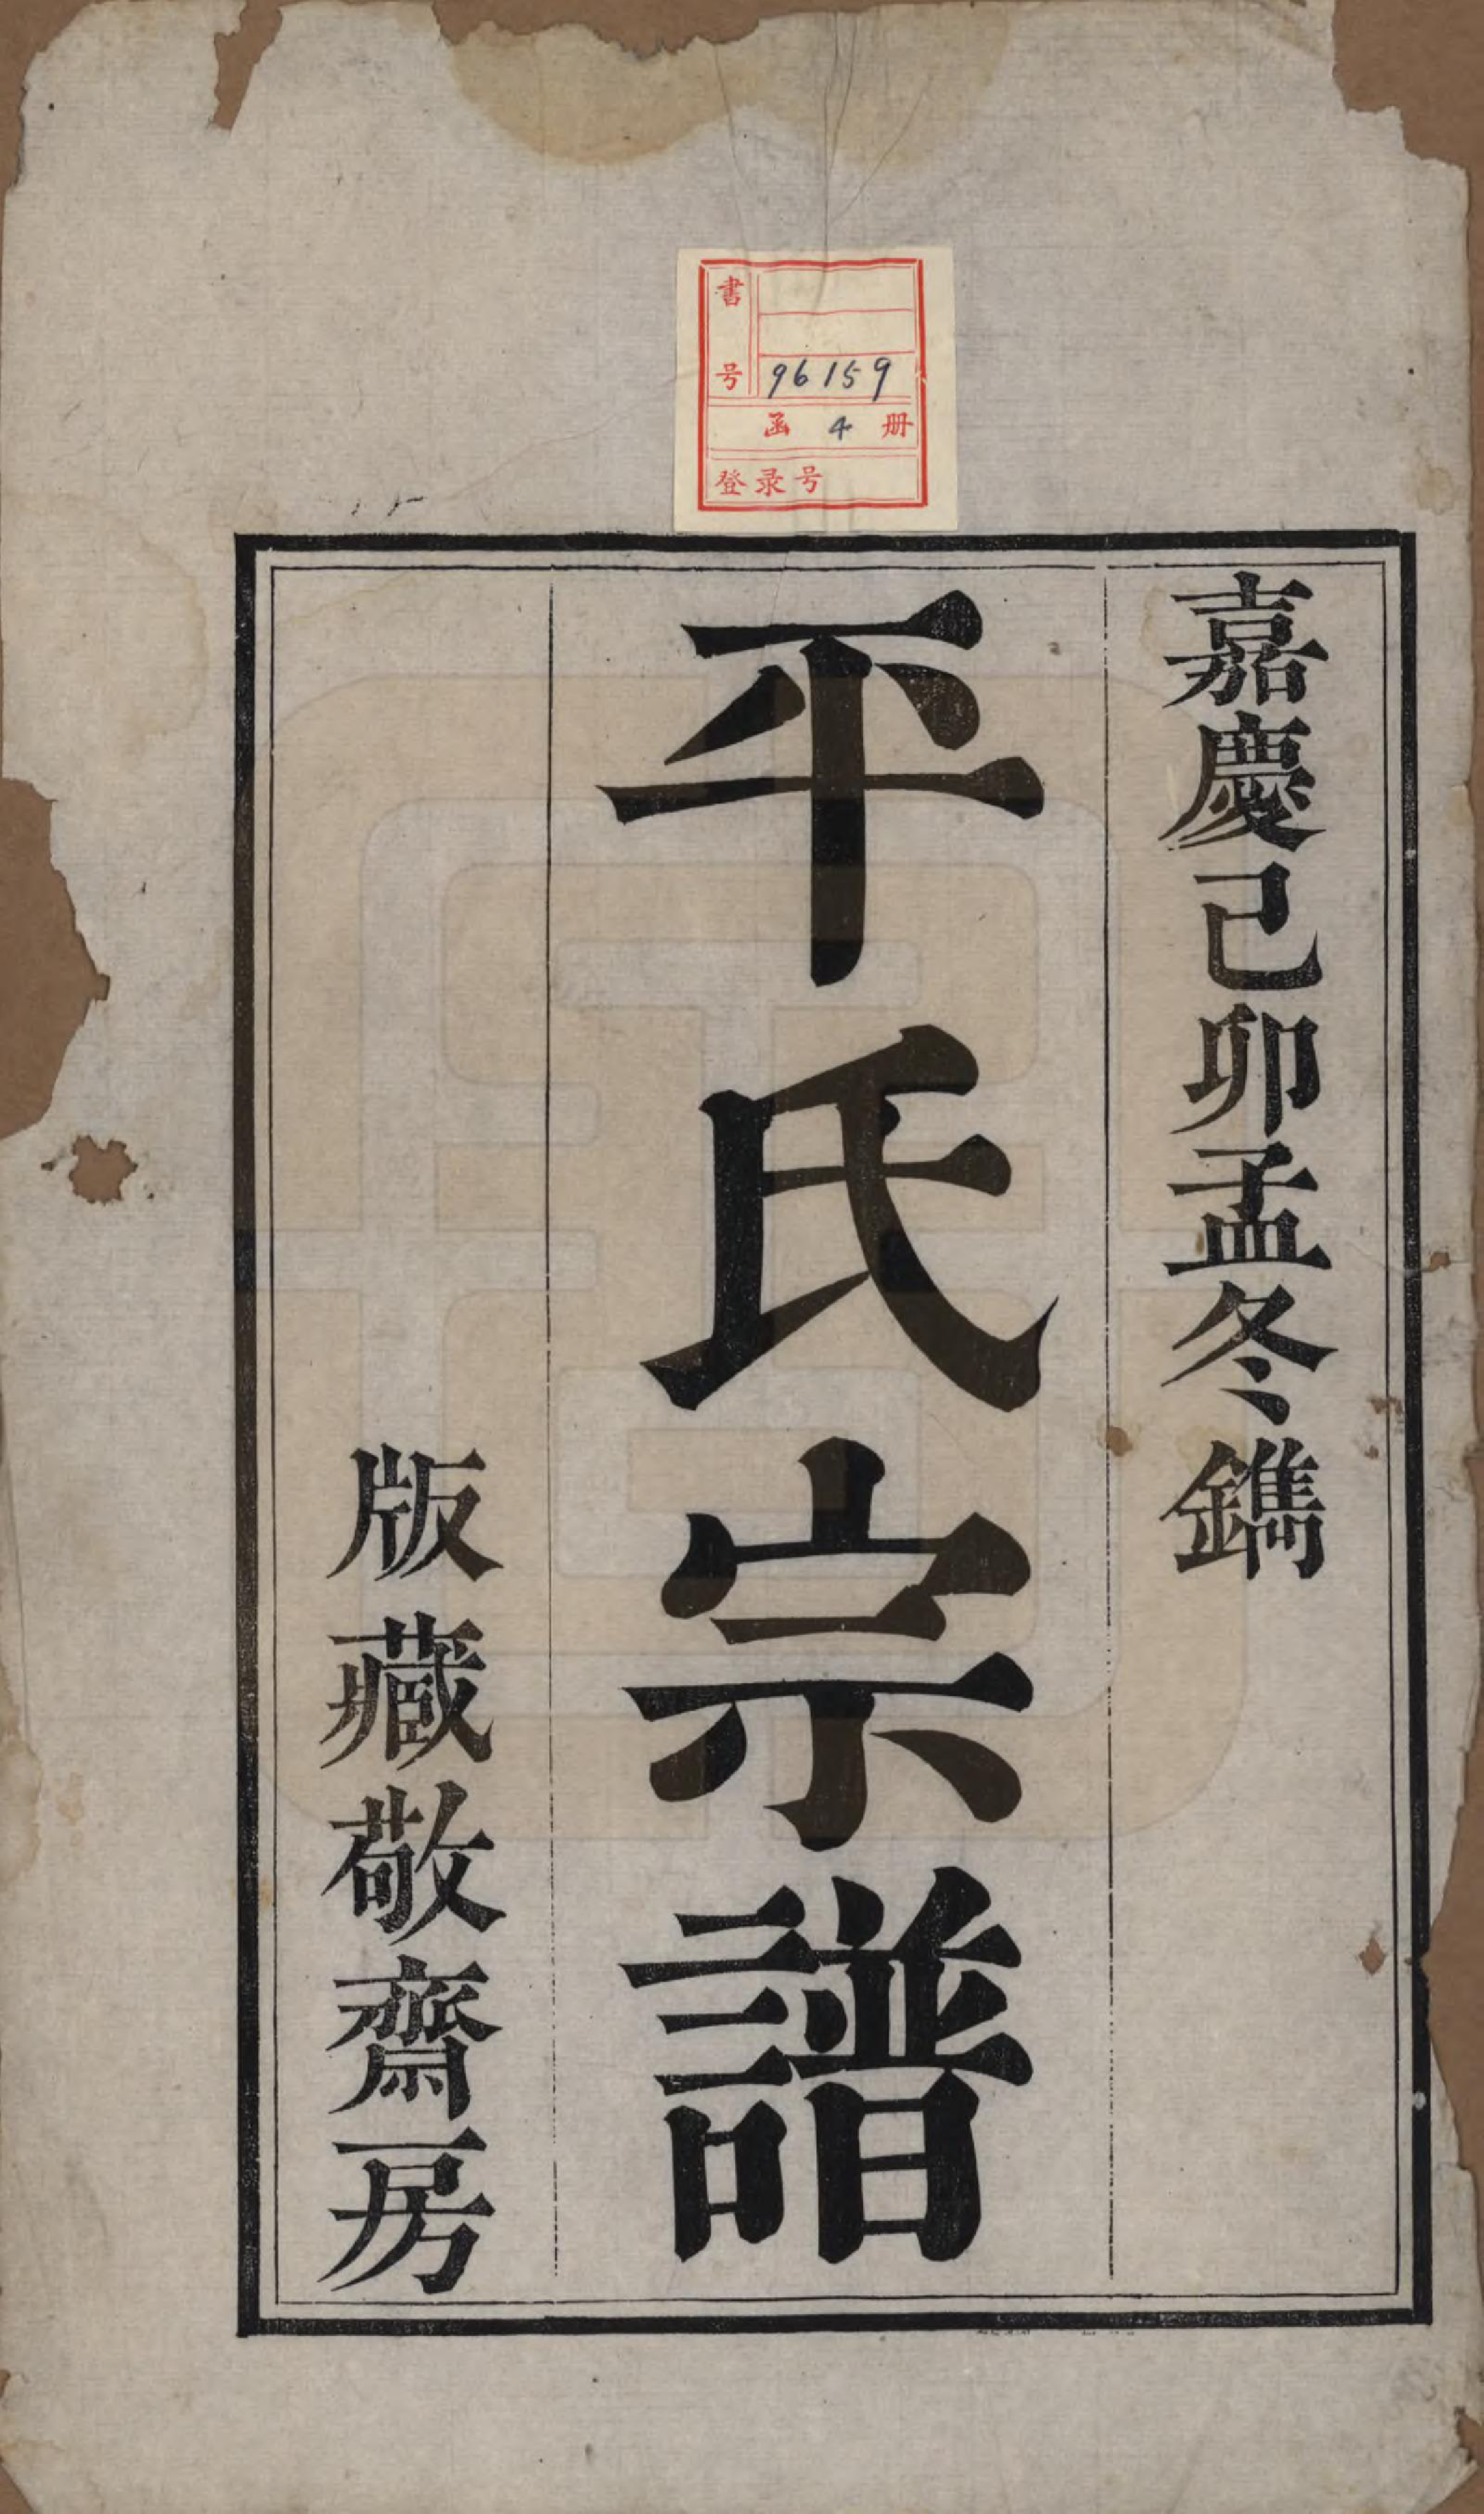 書号 96159
函 4 册
登录号
嘉慶己卯孟冬鐫
平氏宗譜
版藏敬齋房